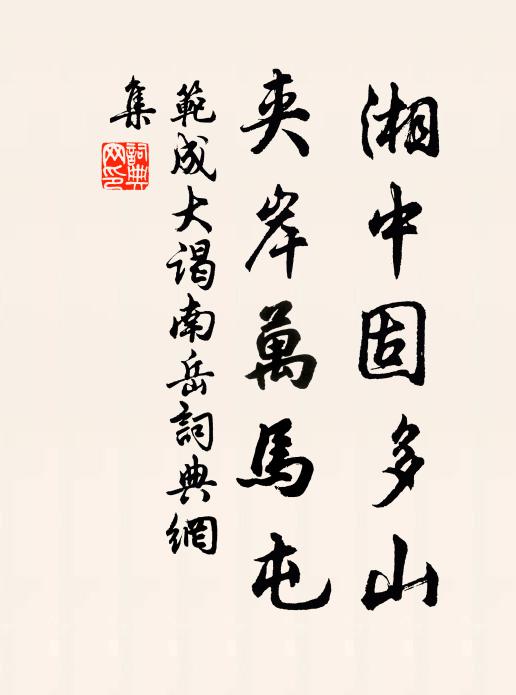 湘中固多山
夹岸萬馬屯
範成大谒南岳詞典網
集
詞典網印